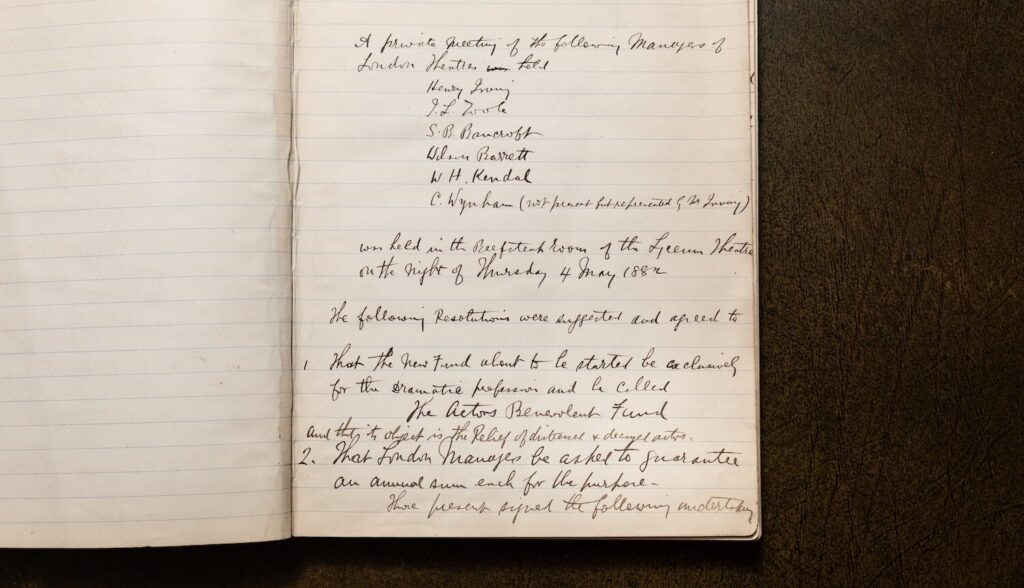 A private meeting of the following Managers of
London Theatres was held
Henry Irving
J. L. Toole
S. B. Bancroft
Wilson Barrett
W. H. Kendal
C. Wyndham (not present but represented by Mr Irving)
was held in the Beefsteak Room of the Lyceum Theatre
on the night of Thursday 4 May 1882
The following Resolutions were suggested and agreed to
1 That the New Fund about to be started be exclusively
for the Dramatic profession and be called
The Actors Benevolent Fund
and that its object is the Relief of distressed & decayed actors.
2. That London Managers be asked to guarantee
an annual sum each for the purpose -
Those present signed the following undertaking